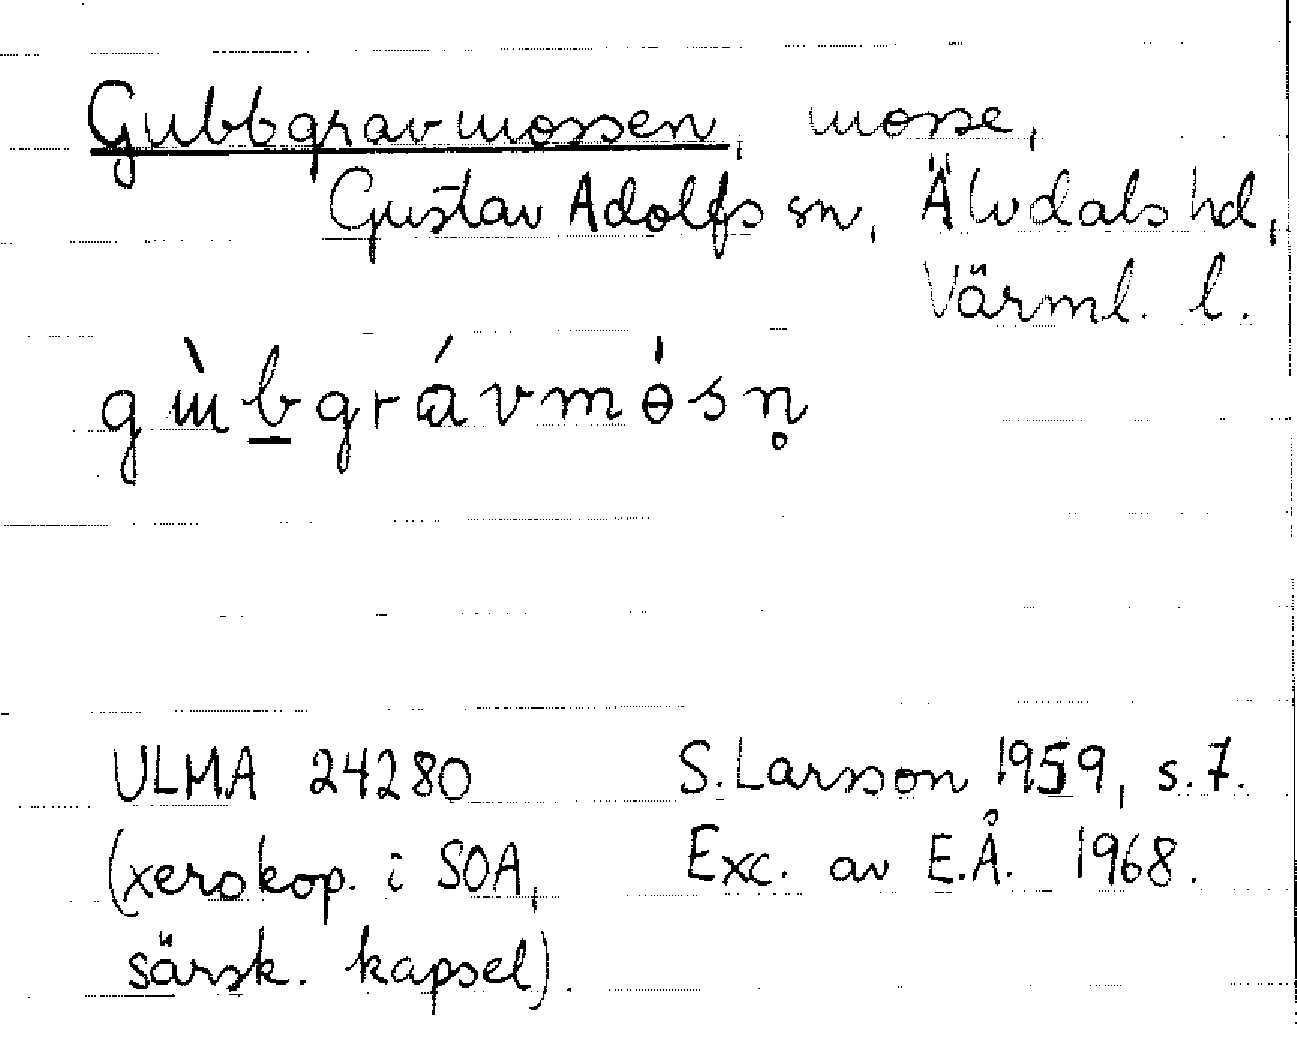 Gubbgravmossen, mosse,
Gustav Adolfs sn, Älvdals hd,
Värml. l.
gɯ̀b̲grávmɵ́sn̥
ULMA 24280 S. Larsson 1959, s. 7.
(xerokop. i SOA, Exc. av E.Å. 1968.
särsk. kapsel).